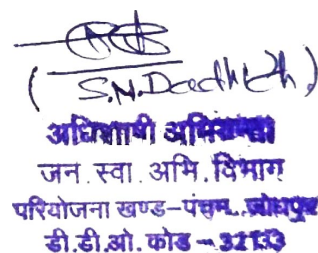 (S.N. Dadhich)
अधिशाषी अभियन्ता
जन. स्वा. अभि. विभाग
परियोजना खण्ड-पंचम, जोधपुर
डी.डी.ओ. कोड - 32133